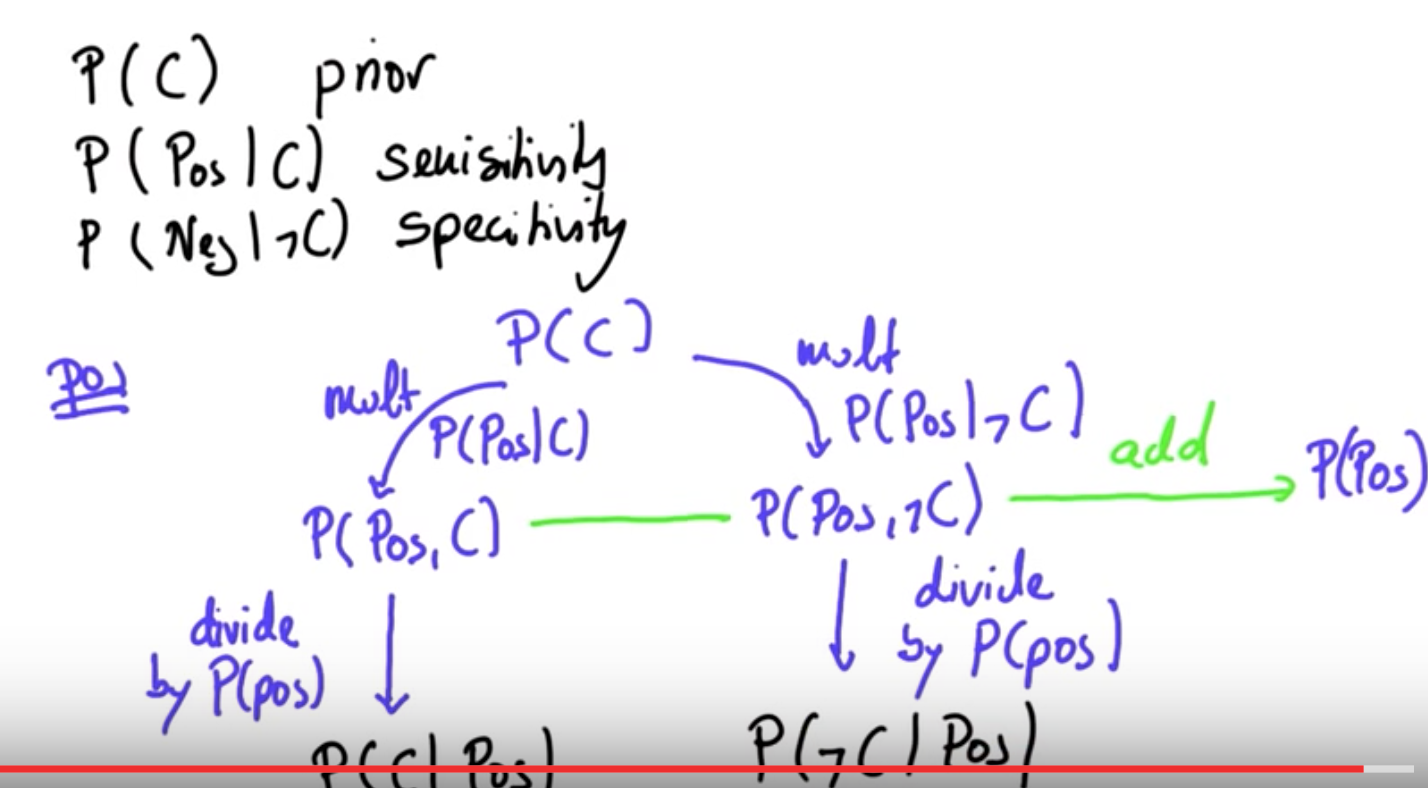 P(C) prior
P(Pos|C) sensitivity
P(Neg|¬C) specitivity
Pos
P(C)
mult
mult
P(Pos|C)
P(Pos|¬C)
add
P(Pos)
P(Pos, C)
P(Pos, ¬C)
divide
by P(pos)
divide
by P(pos)
P(C|Pos)
P(¬C|Pos)